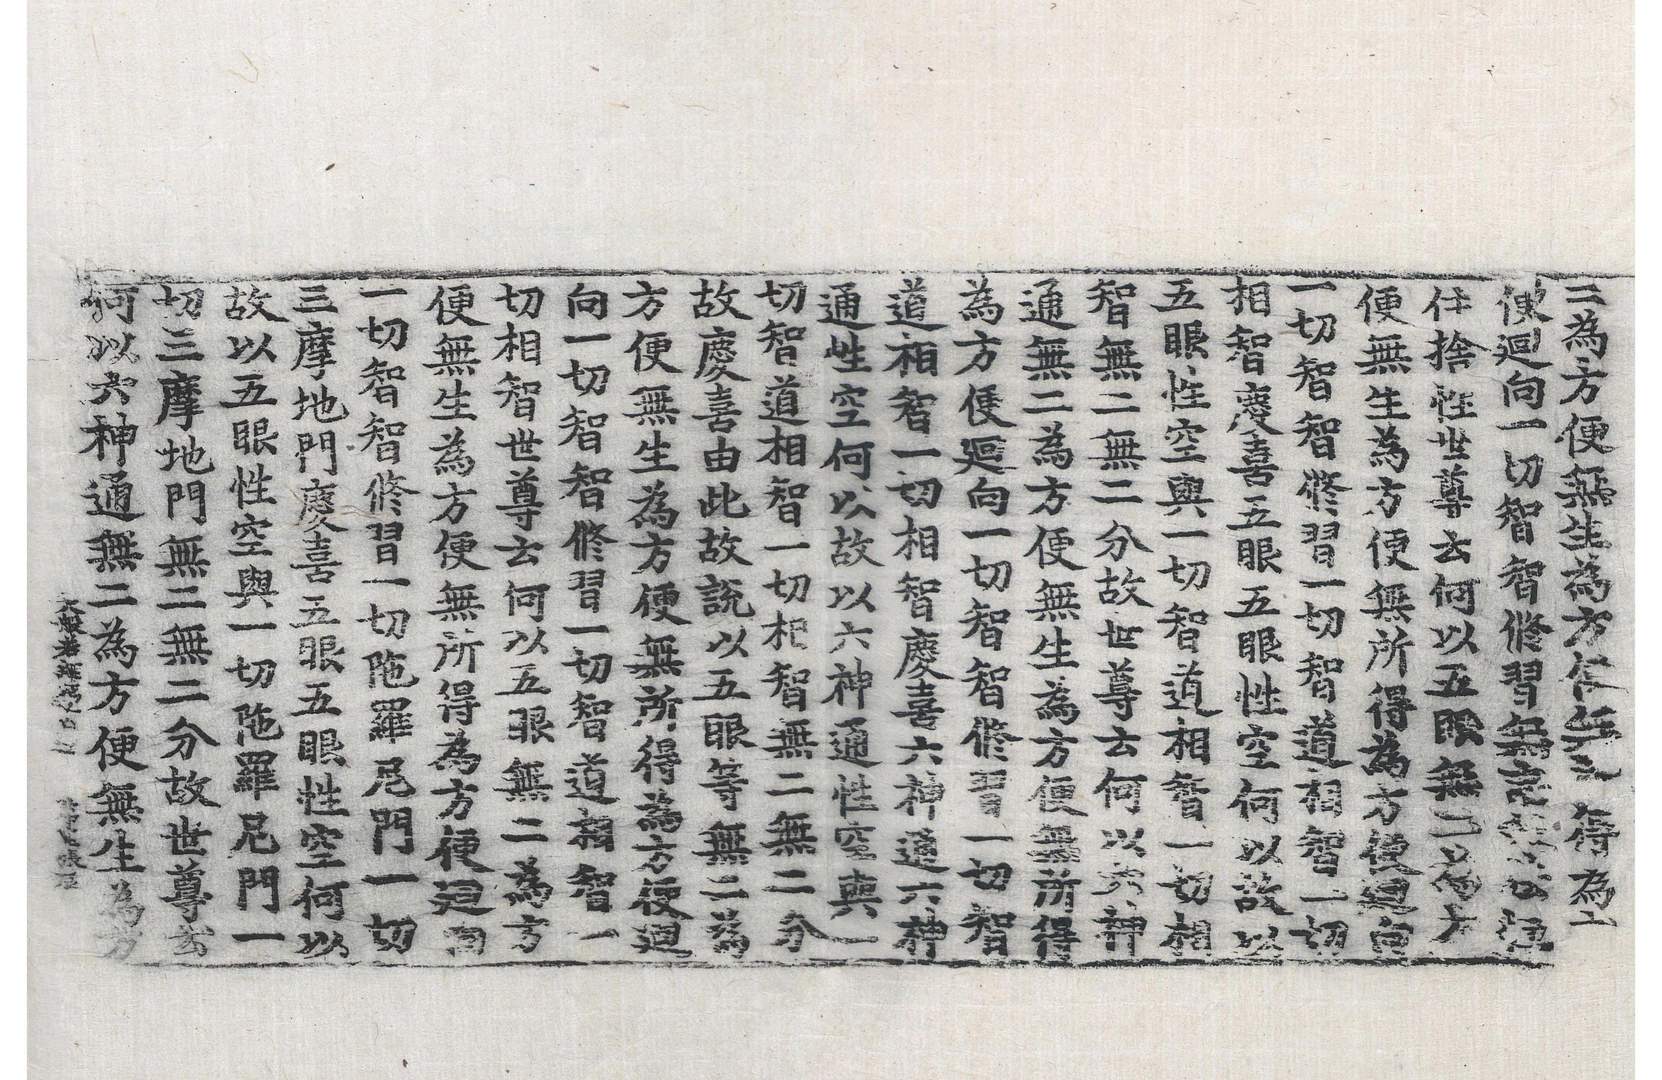 二為方便無生為方便無得為
便迴向一切智智修習無忘
住捨性世尊云何以五眼無二為方
便無生為方便無所得為方便迴向
一切智智修習一切智道相智一切
相智慶喜五眼五眼性空何以故以
五眼性空與一切智道相智一切相
智無二無二分故世尊云何以六神
通無二為方便無生為方便無所得
為方便迴向一切智智修習一切智
道相智一切相智慶喜六神通六神
通性空何以故以六神通性空與一
切智道相智一切相智無二無二分
故慶喜由此故說以五眼等無二為
方便無生為方便無所得為方便迴
向一切智智修習一切智道相智一
切相智世尊云何以五眼無二為方
便無生為方便無所得為方便迴向
一切智智修習一切陁羅尼門一切
三摩地門慶喜五眼五眼性空何以
故以五眼性空與一切陁羅尼門一
切三摩地門無二無二分故世尊云
何以六神通無二為方便無生為方